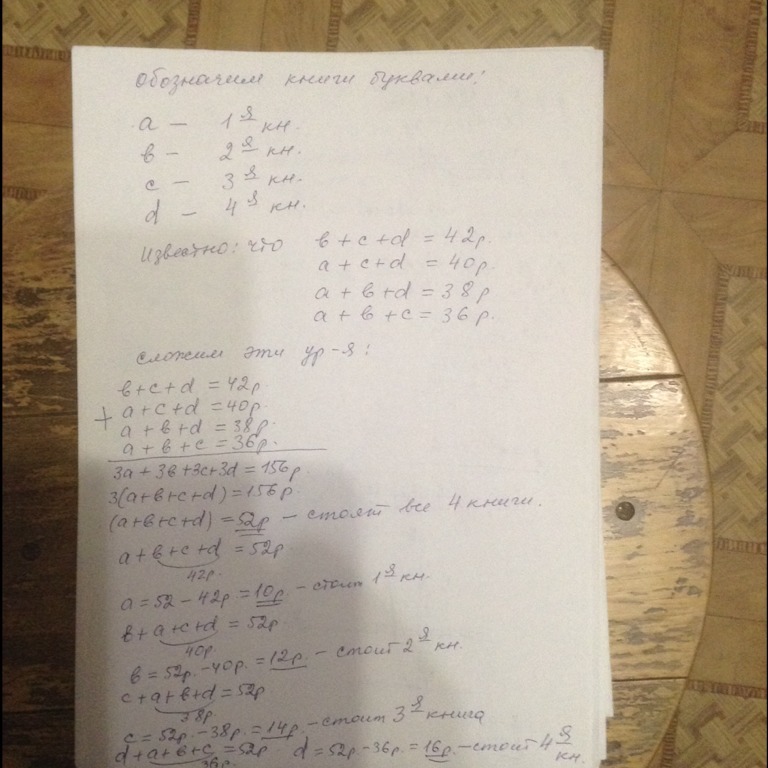 Обозначим книги буквами:
a — 1я кн.
в — 2я кн.
с — 3я кн.
d — 4я кн.
Известно: что в + c + d = 42р.
a + c + d = 40р.
a + в + d = 38р
a + в + c = 36р.
сложим эти ур-я:
в + c + d = 42р.
+ a + c + d = 40р.
a + в + d = 38р.
a + в + c = 36р.
3a + 3в + 3c + 3d = 156р.
3(a + в + c + d) = 156р.
(a + в + c + d) = 52р — стоят все 4 книги.
a + в + c + d = 52р
42р.
a = 52 - 42р = 10р. - стоит 1я кн.
в + a + c + d = 52р.
40р.
в = 52р. - 40р. = 12р. - стоит 2я кн.
c + a + в + d = 52р
38р.
c = 52р. - 38р. = 14р. - стоит 3я книга
d + a + в + c = 52р d = 52р - 36р. = 16р. - стоит 4я кн.
36р.